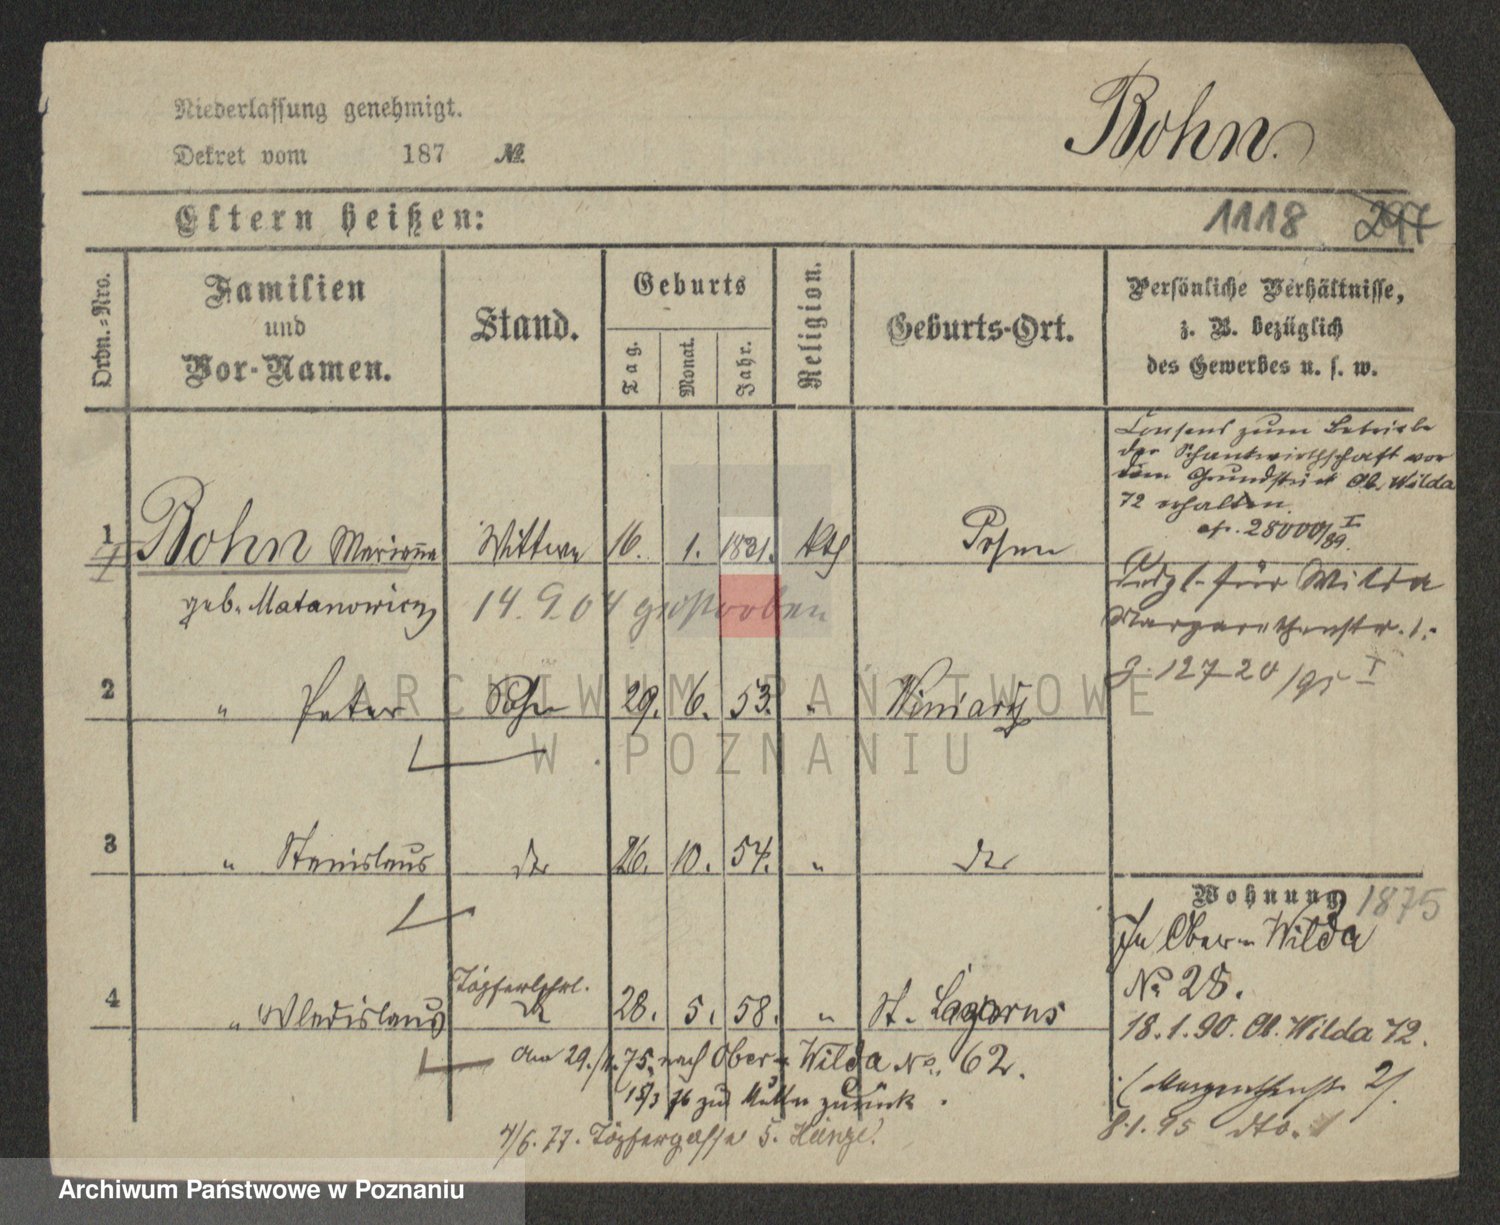 Niederlassung genehmigt.
Bohn.
Dekret vom 187 №.
Eltern heißen:
1118 297
Ordn.-Nro.
Familien
und
Vor-Namen.
Stand.
Geburts
Tag.
Monat.
Jahr.
Religion.
Geburts-Ort.
Persönliche Verhältnisse,
z. B. bezüglich
des Gewerbes u. s. w.
Consens zum Betriebe
der Schankwirthschaft vor
dem Grundstück Ob. Wilda
72 erhalten.
cf. 28000/89. I
1 Bohn Marianna Wittwe 16. 1. 1821. kth Posen
geb. Matanowicz 14.9.04 gestorben
desgl. für Wilda
Margarethenstr. 1.
J. 12720/95 I
2 " Peter Sohn 29. 6. 53. " Winiary
ARCHIWUM PAŃSTWOWE
W POZNANIU
3 " Stanislaus do 26. 10. 54. " do
Wohnung 1875
In Ober-Wilda
No 28.
4 " Wladislaus Töpferlehrl. do 28. 5. 58. " St. Lazarus
18.1.90. Ob. Wilda 72.
Am 29./11. 75. nach Ober-Wilda No. 62.
(Margarethenstr. 2).
15/3 76 zur Mutter zurück.
8.1.95 dto. 1
4/6. 77. Töpfergasse 5.
Archiwum Państwowe w Poznaniu